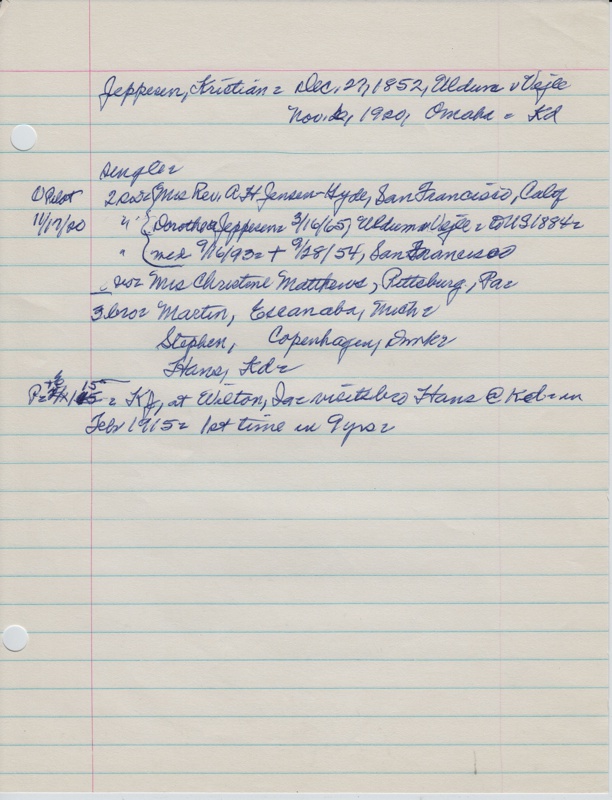 Jeppesen, Kristian = Dec. 27, 1852, Uldum v Vejle
Nov. 12, 1920, Omaha = Kd
single =
O Pilot 2 sis = Mrs Rev. A H Jensen-Hyde, San Francisco, Calif
11/17/20 " Dorothea Jeppesen = 3/16/65, Uldum v Vejle = to US 1884 =
" med 9/16/93 = + 9/28/54, San Francisco
sis = Mrs Christine Matthews, Pittsburg, Pa =
3 bro = Martin, Escanaba, Mich =
Stephen, Copenhagen, Dmk =
Hans, Kd =
15 = KJ, at Wilton, Ia = visits bro Hans @ Kd = in
Feb 1915 = 1st time in 9 yrs =